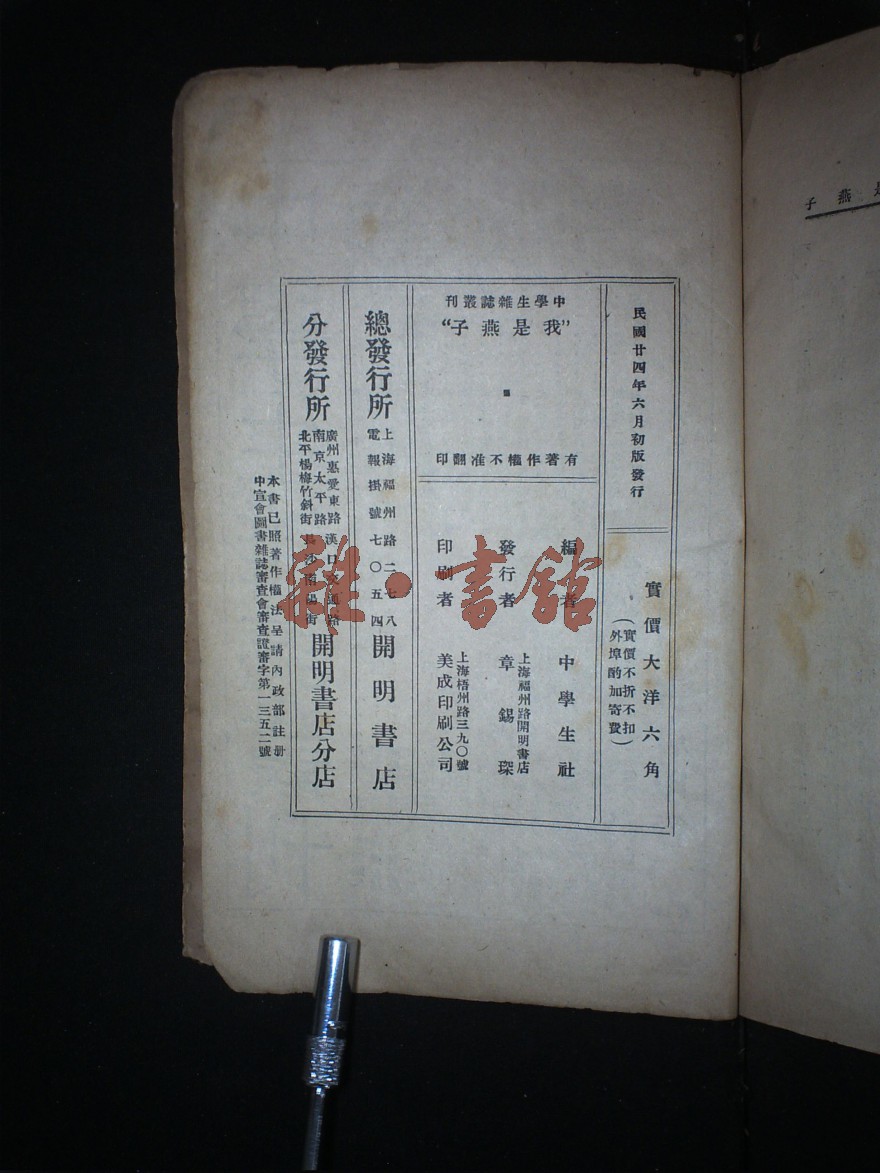 是燕子
民國廿四年六月初版發行
實價大洋六角
(實價不折不扣
外埠酌加寄費)
中學生雜誌叢刊
“我是燕子“
有著作權不准翻印
編者 中學生社
發行者 章錫琛
上海福州路開明書店
印刷者 美成印刷公司
上海梧州路三九〇號
總發行所
上海福州路二七八
電報掛號七〇五四
開明書店
分發行所
廣州惠愛東路 漢口
南京太平路
北平楊梅竹斜街
開明書店分店
本書已照著作權法呈請內政部註册
中宣會圖書雜誌審查會審查證審字第一三五二號
雜·書館